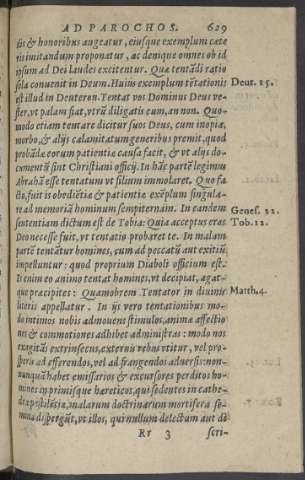 AD PAROCHOS. 629
sis & honoribus augeatur, eiusque exemplum cæte
ris imitandum proponatur, ac denique omnes ob id
ipsum ad Dei laudes excitentur. Quæ tentãdi ratio
sola conuenit in Deum. Huius exemplum tẽtationis Deut. 15.
est illud in Deuteron. Tentat vos Dominus Deus ve-
ster, vt palam fiat, vtrũ diligatis eum, an non. Quo-
modo etiam tentare dicitur suos Deus, cum inopia,
morbo, & alijs calamitatum generibus premit, quod
probãdæ eorum patientiæ causa facit, & vt alijs do-
cumentũ sint Christiani officij. In hãc partẽ legimus
Abrahã esse tentatum vt filium immolaret. Quo fa-
cto, fuit is obediẽtiæ & patientiæ exẽplum singula-
re ad memoriã hominum sempiternam. In eandem Genes. 22.
sententiam dictum est de Tobia: Quia acceptus eras Tob. 12.
Deo necesse fuit, vt tentatio probaret te. In malam
partẽ tentãtur homines, cum ad peccatũ aut exitiũ
impelluntur: quod proprium Diaboli officium est:
Is enim eo animo tentat homines, vt decipiat, agat-
que præcipites: Quamobrem Tentator in diuinis Matth. 4.
litteris appellatur. In ijs vero tentationibus mo-
do intimos nobis admouens stimulos, animæ affectio
nes & commotiones adhibet administras: modo nos
exagitãs extrinsecus, externis rebus vtitur, vel pro-
speris ad efferendos, vel ad frangendos aduersis: non-
nunquã habet emissarios & excursores perditos ho-
mines in primisque hæreticos, qui sedentes in cathe-
dra pestilẽtiæ, malarum doctrinarum mortifera se-
mina dispergũt, vt illos, qui nullum delectum aut di
Rr 3 scri-